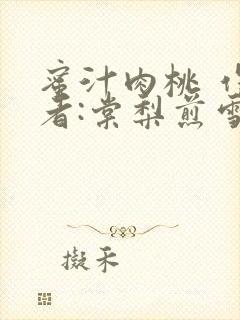 蜜汁肉桃 作
者:棠梨煎雪
擬禾